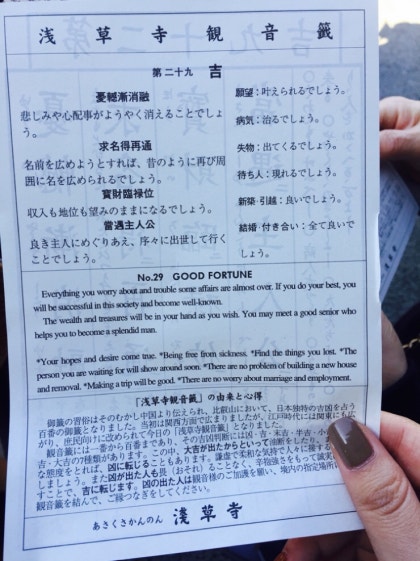 浅草寺観音籤
第二十九 吉
憂轗漸消融
悲しみや心配事がようやく消えることでしょ
う。
求名得再通
名前を広めようとすれば、昔のように再び周
囲に名を広められるでしょう。
寳財臨禄位
収入も地位も望みのままになるでしょう。
當遇主人公
良き主人にめぐりあえ、序々に出世して行く
ことでしょう。
願望:叶えられるでしょう。
病気:治るでしょう。
失物:出てくるでしょう。
待ち人:現れるでしょう。
新築·引越:良いでしょう。
結婚·付き合い:全て良いで
しょう。
No.29 GOOD FORTUNE
Everything you worry about and trouble some affairs are almost over. If you do your best, you
will be successful in this society and become well-known.
The wealth and treasures will be in your hand as you wish. You may meet a good senior who
helps you to become a splendid man.
*Your hopes and desire come true. *Being free from sickness. *Find the things you lost. *The
person you are waiting for will show around soon. *There are no problem of building a new house
and removal. *Making a trip will be good. *There are no worry about marriage and employment.
「浅草寺観音籤」の由来と心得
御籤の習俗はそのむかし中国より伝えられ、比叡山において、日本独特の吉凶を占う
百番の御籤となりました。当初は関西方面で広まりましたが、江戸時代には関東にも広
がり、庶民向けに改められて今日の「浅草寺観音籤」となりました。
観音籤には一番から百番まであり、その吉凶判断には凶・吉・末吉・半吉・小
吉・大吉の7種類があります。この中、大吉が出たからといって油断をしたり、
な態度をとれば、凶に転じることもあります。謙虚で柔和な気持で人々に接する
しましょう。また凶が出た人も畏(おそれ)ることなく、辛抱強さをもって誠実
すことで、吉に転じます。凶の出た人は観音様のご加護を願い、境内の指定場所
観音籤を結んで、ご縁つなぎをしてください。
あさくさかんのん 浅草寺